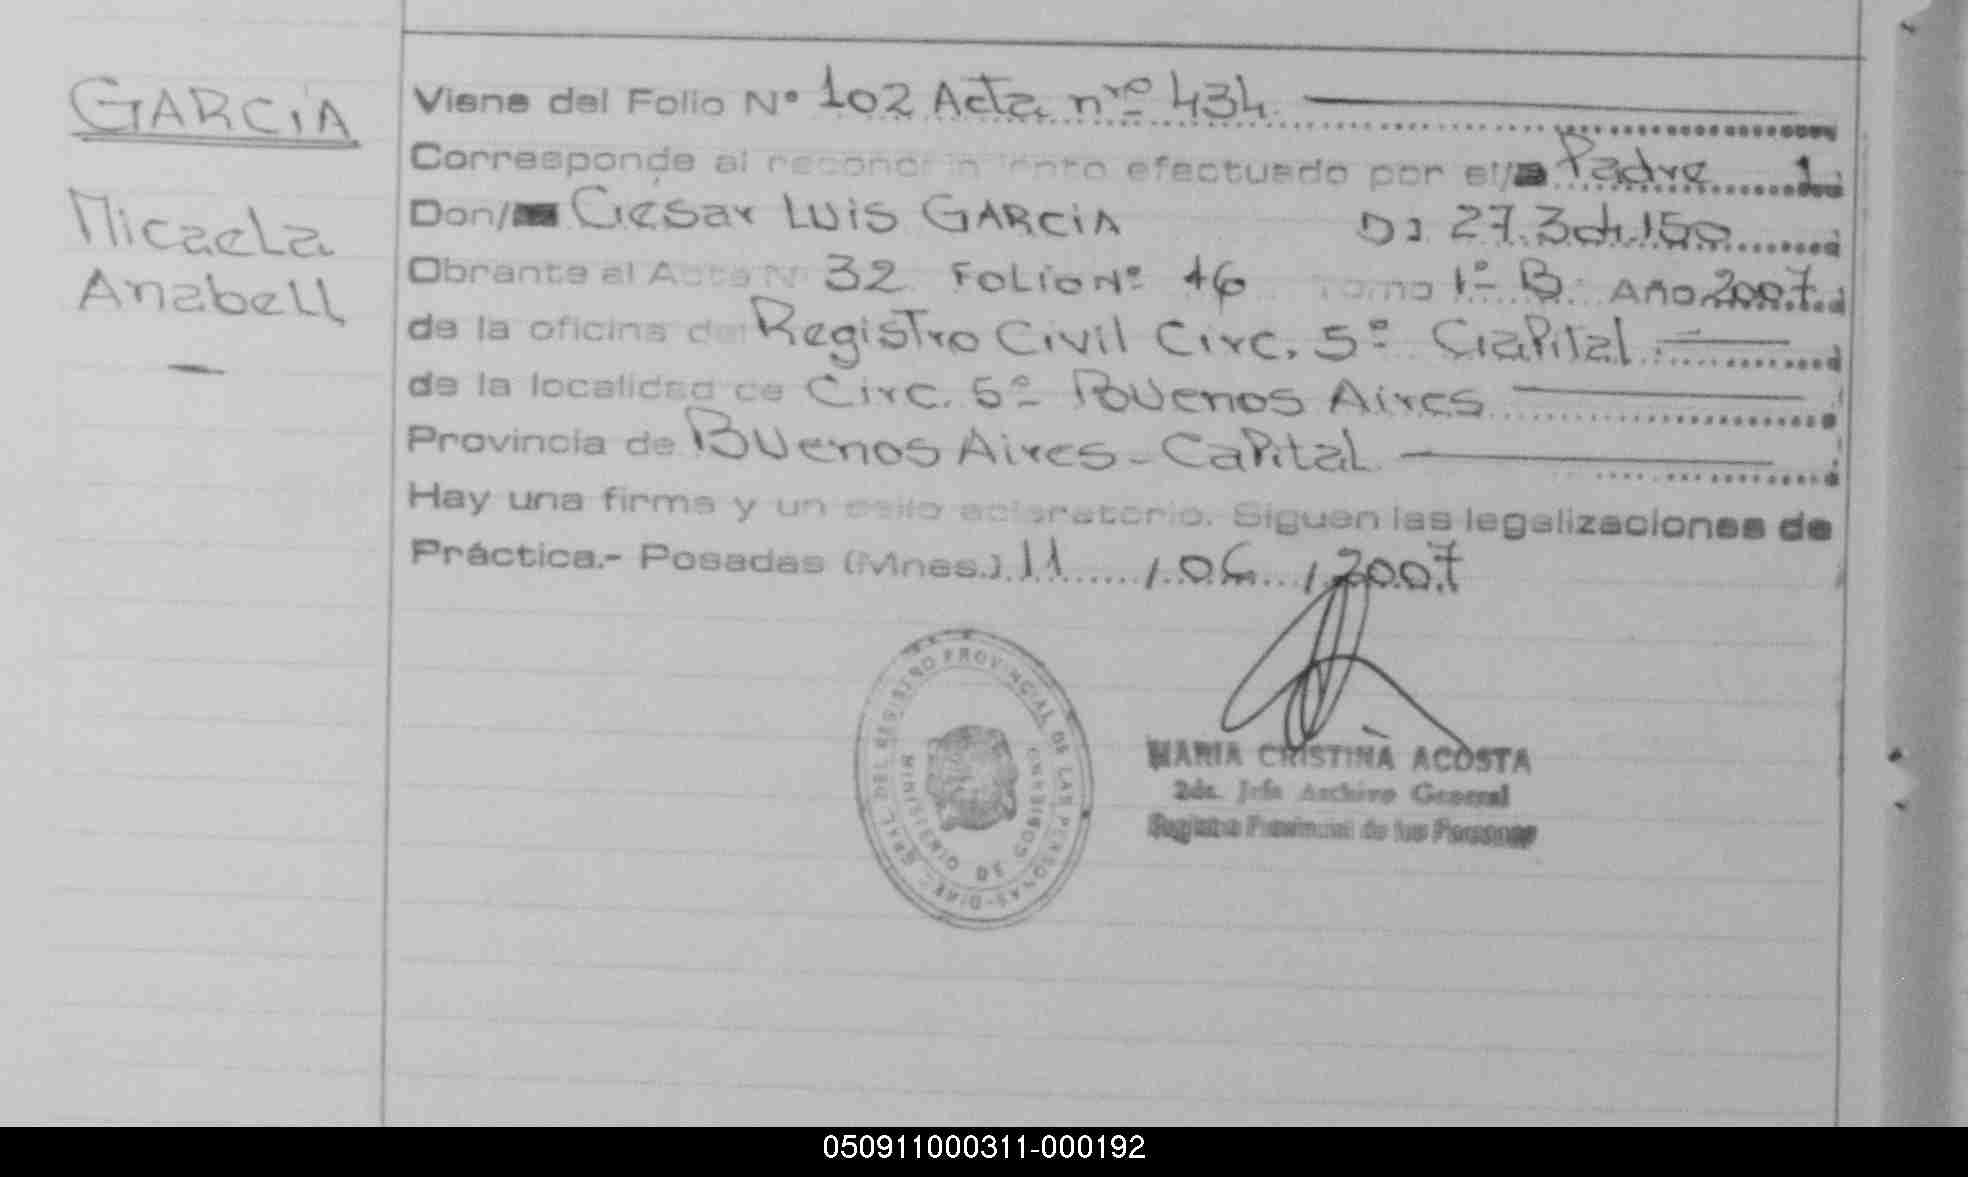 GARCIA
Micaela
Anabell
Viene del Folio Nº 102 Acta nrº 434.
Corresponde al reconocimiento efectuado por el/la Padre
Don/ César Luis GARCIA
Obrante al Acta Nº 32 Folio Nº 16 Tomo 1º B. Año 2007.
de la oficina del Registro Civil Circ. 5º Capital.
de la localidad de Circ. 5º Buenos Aires
Provincia de Buenos Aires - Capital
Hay una firma y un sello aclaratorio. Siguen las legalizaciones de
Práctica.- Posadas (Mnes.) 11 / 06 / 2007
DIREC. GRAL. DEL REGISTRO PROVINCIAL DE LAS PERSONAS
MINISTERIO DE GOBIERNO
MARIA CRISTINA ACOSTA
2da. Jefa Archivo General
Registro Provincial de las Personas
050911000311-000192